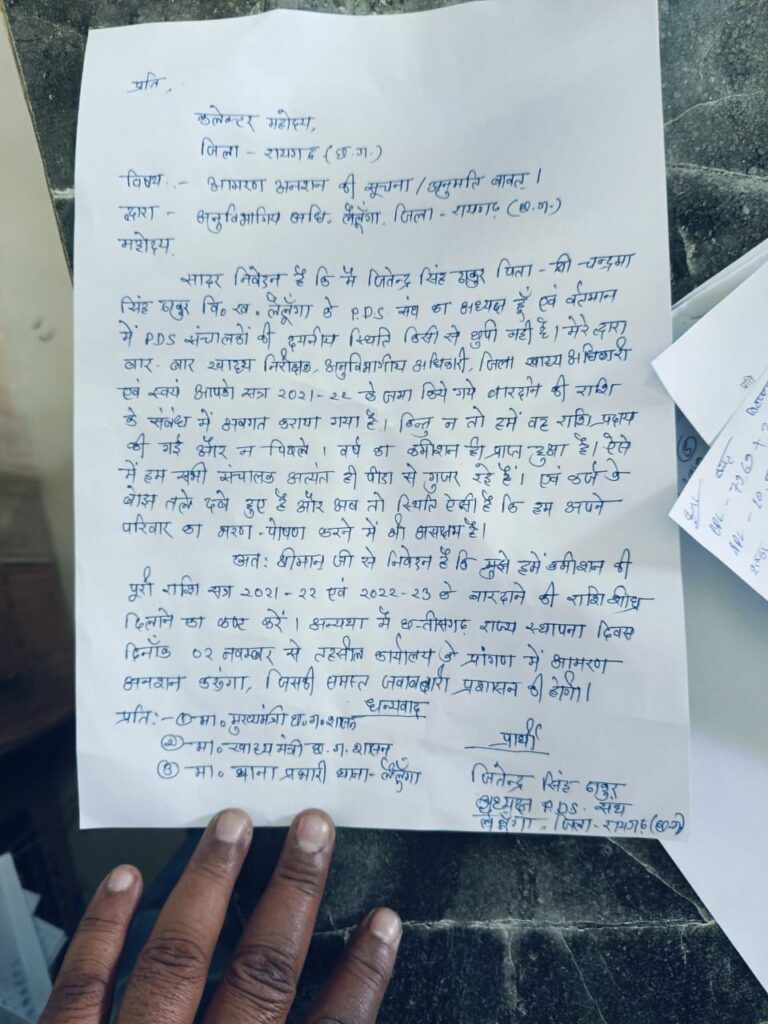 प्रति,
कलेक्टर महोदय,
जिला - रायगढ़ (छ.ग.)
विषय :- आमरण अनशन की सूचना / अनुमति बाबत् ।
द्वारा - अनुविभागिय अधि. लैलूँगा. जिला - रायगढ़ (छ.ग.)
महोदय,
सादर निवेदन है कि मैं जितेन्द्र सिंह ठाकुर पिता - श्री चन्द्रमा
सिंह ठाकुर वि० ख० लैलूँगा के P.D.S. संघ का अध्यक्ष हूँ एवं वर्तमान
में P.D.S संचालकों की दयनीय स्थिति किसी से छुपी नही है । मेरे द्वारा
बार - बार खाद्य निरीक्षक, अनुविभागीय अधिकारी, जिला खाद्य अधिकारी
एवं स्वयं आपको सत्र २०२१-२२ के जमा किये गये बारदाने की राशि
के संबंध में अवगत कराया गया है । किन्तु न तो हमें वह राशि प्रदाय
की गई और न पिछले । वर्ष का कमीशन ही प्राप्त हुआ है । ऐसे
में हम सभी संचालक अत्यंत ही पीडा से गुजर रहे हैं । एवं कर्ज के
बोझ तले दबे हुए है और अब तो स्थिति ऐसी है कि हम अपने
परिवार का भरण - पोषण करने में भी असक्षम है ।
अतः श्रीमान जी से निवेदन है कि मुझे हमें कमीशन की
पूरी राशि सत्र २०२१-२२ एवं २०२२-२३ के बारदाने की राशि शीघ्र
दिलाने का कष्ट करें । अन्यथा मैं छत्तीसगढ़ राज्य स्थापना दिवस
दिनाँक ०२ नवम्बर से तहसील कार्यालय के प्रांगण में आमरण
अनशन करूंगा, जिसकी समस्त जवाबदारी प्रशासन की होगी ।
धन्यवाद
प्रति :- ① मा० मुख्यमंत्री छ.ग. शासन
② मा० खाद्य मंत्री छ.ग. शासन
③ मा० थाना प्रभारी थाना - लैलूँगा
प्रार्थी
जितेन्द्र सिंह ठाकुर
अध्यक्ष P.D.S. संघ
लैलूँगा, जिला - रायगढ़ (छ.ग)